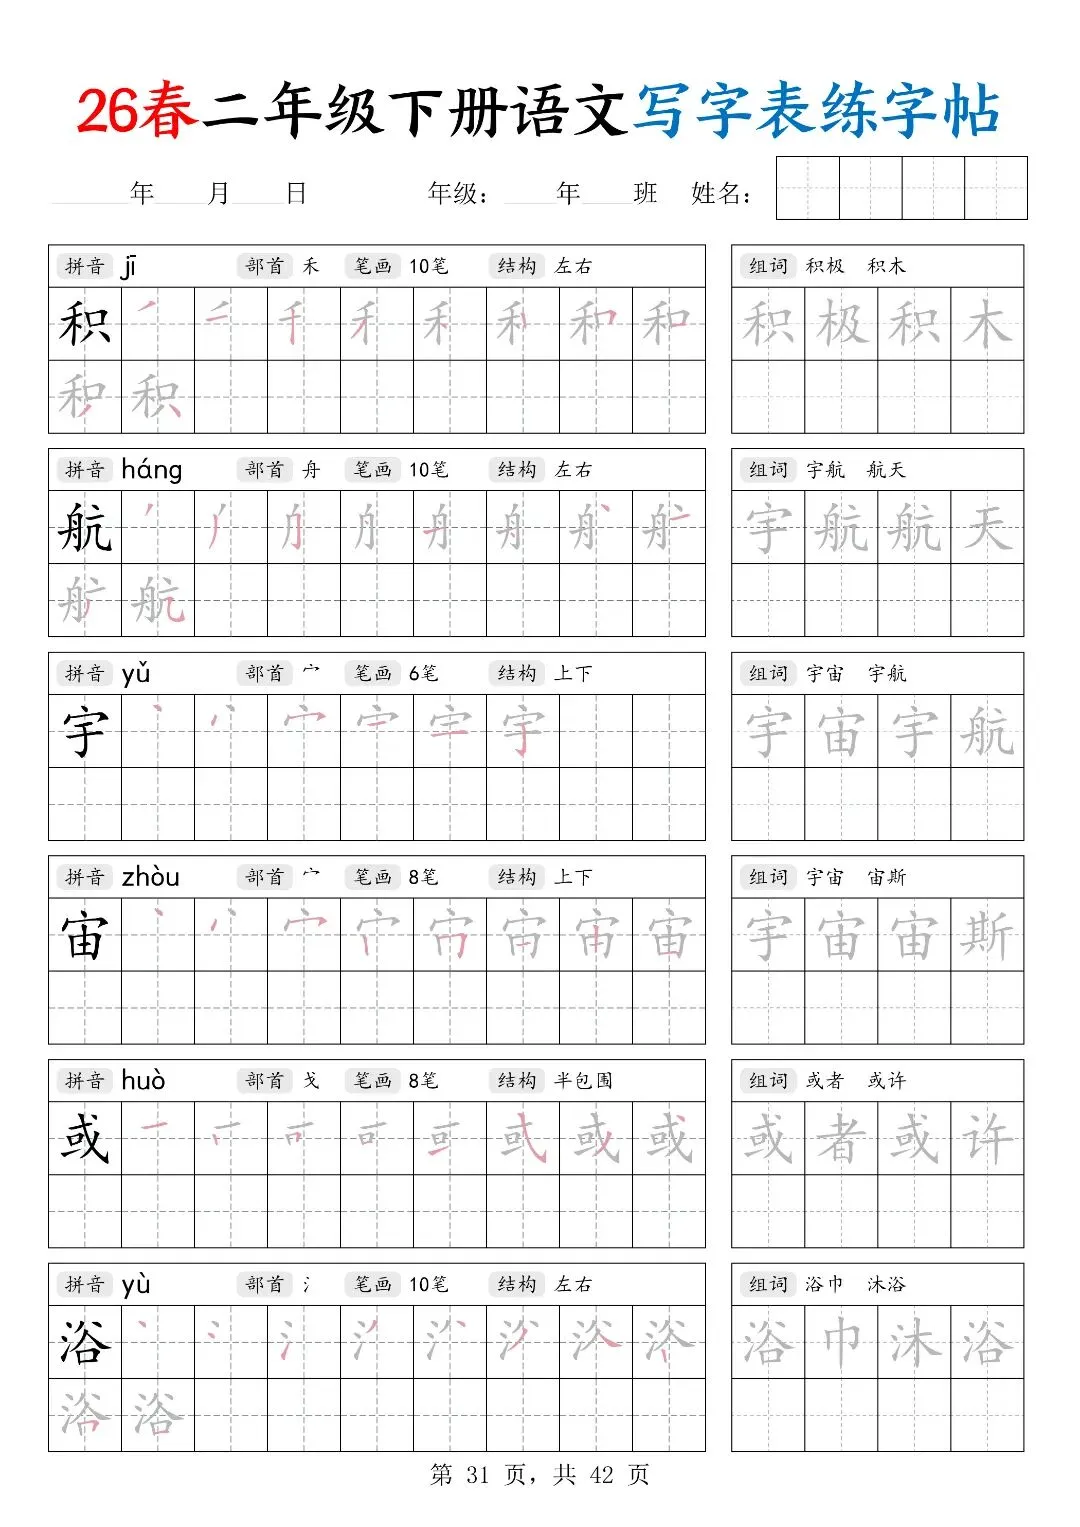 26春二年级下册语文写字表练字帖
年 月 日 年级： 年 班 姓名：
拼音 jī 部首 禾 笔画 10笔 结构 左右
组词 积极 积木
积
积 极 积 木
积
拼音 háng 部首 舟 笔画 10笔 结构 左右
组词 宇航 航天
航
宇 航 航 天
航
拼音 yǔ 部首 宀 笔画 6笔 结构 上下
组词 宇宙 宇航
宇 宇
宇 宙 宇 航
拼音 zhòu 部首 宀 笔画 8笔 结构 上下
组词 宇宙 宙斯
宙 宙
宇 宙 宙 斯
拼音 huò 部首 戈 笔画 8笔 结构 半包围
组词 或者 或许
或 或
或 者 或 许
拼音 yù 部首 氵 笔画 10笔 结构 左右
组词 浴巾 沐浴
浴
浴 巾 沐 浴
浴
第 31 页，共 42 页